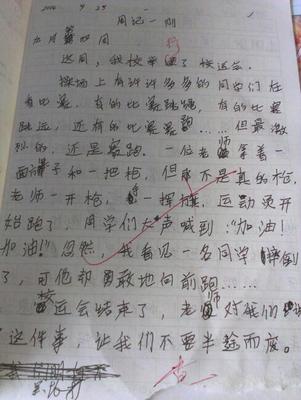 9 25
周记一则
九月第四周
这周，我校举了校运会。
操场上有许许多多的同学们在
有比赛，有的比赛跳绳，有的比赛
跳远，还有的比赛赛跑……但最激
烈的，还是赛跑。一位老师拿着一
面子和一把枪，但不是真的枪。
老师一开枪，一挥旗，运动员开
始跑了，同学们大声喊到：“加油！
加油！忽然，我看见一名同学摔倒
了，可他却勇敢地向前跑……
校运会结束了，老师对我们
这件事，让我们不要半途而废。